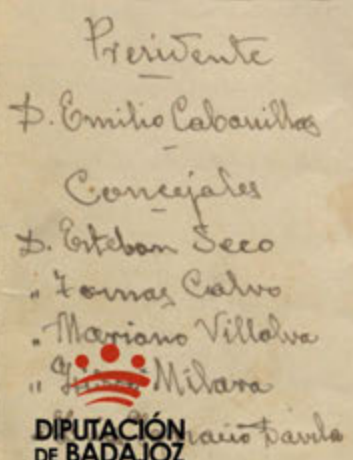 Presidente
D. Emilio Cabanillas
Concejales
D. Esteban Seco
" Tomas Calvo
" Mariano Villalva
" Milara
Davila
DIPUTACIÓN
DE BADAJOZ